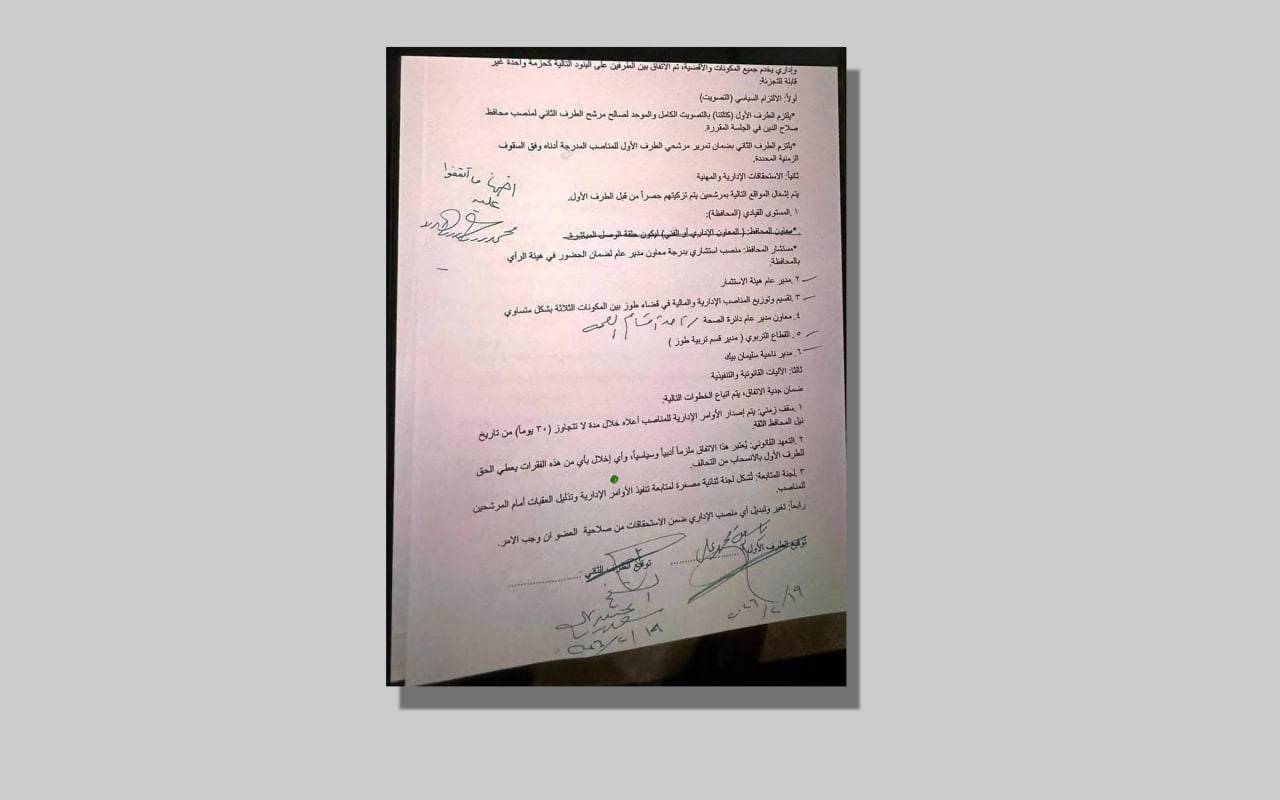 وإداري يخدم جميع المكونات والأقضية، تم الاتفاق بين الطرفين على البنود التالية كحزمة واحدة غير
قابلة للتجزئة:
أولاً: الالتزام السياسي (التصويت)
*يلتزم الطرف الأول (كتلتنا) بالتصويت الكامل والموحد لصالح مرشح الطرف الثاني لمنصب محافظ
صلاح الدين في الجلسة المقررة.
*يلتزم الطرف الثاني بضمان تمرير مرشحي الطرف الأول للمناصب المدرجة أدناه وفق السقوف
الزمنية المحددة.
ثانياً: الاستحقاقات الإدارية والمهنية
يتم إشغال المواقع التالية بمرشحين يتم تزكيتهم حصراً من قبل الطرف الأول.
١ .المستوى القيادي (المحافظة):
*معاون المحافظ: ( المعاون الإداري أو الفني) ليكون حلقة الوصل المباشرة.
*مستشار المحافظ: منصب استشاري بدرجة معاون مدير عام لضمان الحضور في هيئة الرأي
بالمحافظة.
٢ .مدير عام هيئة الاستثمار
٣ .تقسيم وتوزيع المناصب الإدارية والمالية في قضاء طوز بين المكونات الثلاثة بشكل متساوي
٤ . معاون مدير عام دائرة الصحة
٥ . القطاع التربوي ( مدير قسم تربية طوز )
٦ . مدير ناحية سليمان بيك
ثالثا: الآليات القانونية والتنفيذية
ضمان جدية الاتفاق، يتم اتباع الخطوات التالية:
١ .سقف زمني: يتم إصدار الأوامر الإدارية للمناصب أعلاه خلال مدة لا تتجاوز (٣٠ يوماً) من تاريخ
نيل المحافظ الثقة.
٢ .التعهد القانوني: يُعتبر هذا الاتفاق ملزماً أدبياً وسياسياً، وأي إخلال بأي من هذه الفقرات يعطي الحق
للطرف الأول بالانسحاب من التحالف.
٣ .لجنة المتابعة: تُشكل لجنة ثنائية مصغرة لمتابعة تنفيذ الأوامر الإدارية وتذليل العقبات أمام المرشحين
للمناصب.
رابعاً: تغير وتبديل أي منصب الإداري ضمن الاستحقاقات من صلاحية العضو ان وجب الامر.
توقيع الطرف الأول ....................
توقيع الطرف الثاني ....................
عليه
١٩/٢/٢٠٢٦
١٩/٢/٢٠٢٦